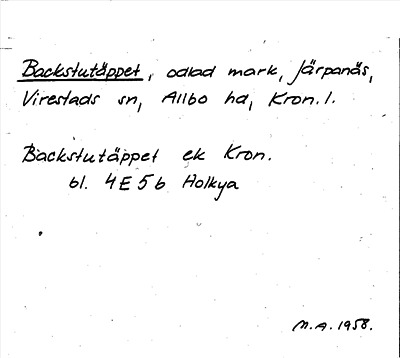 Backstutäppet, odlad mark, Järpanäs,
Virestads sn, Allbo hd, Kron. l.
Backstutäppet ek Kron.
bl. 4E5b Holkya
M.A. 1958.